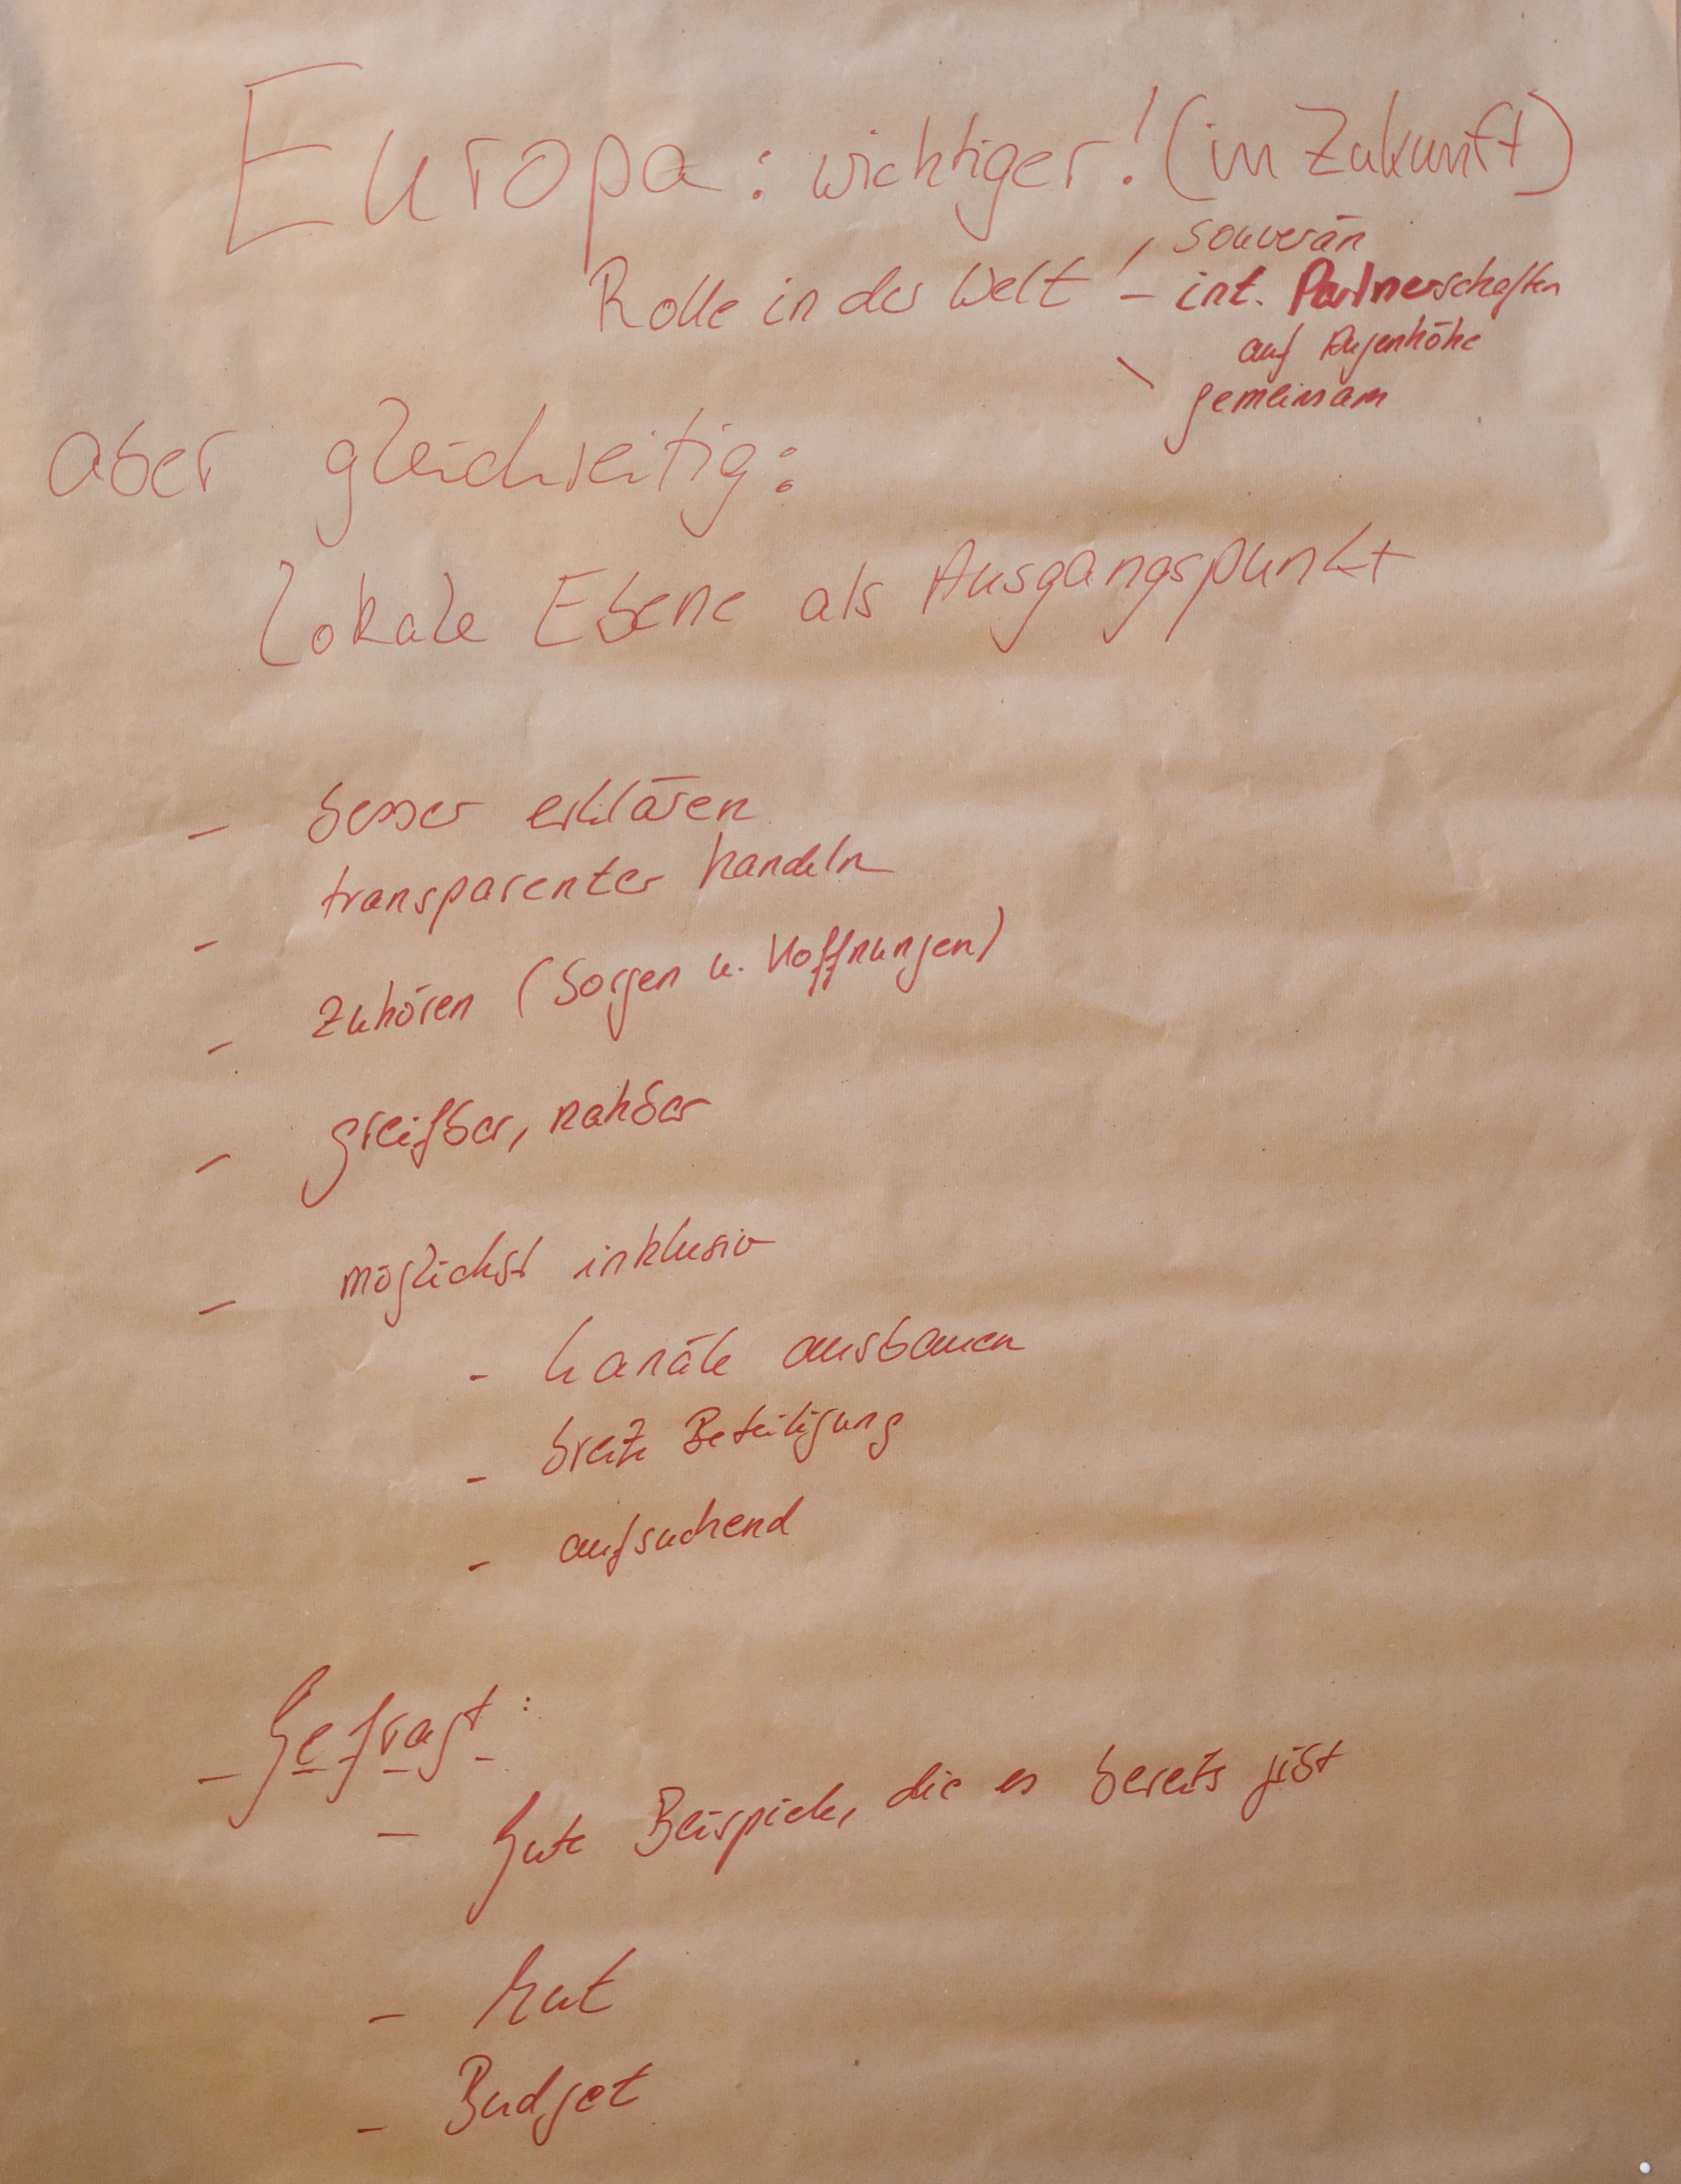 Europa: wichtiger! (in Zukunft)
Rolle in der Welt
- souverän
- int. Partnerschaften
auf Augenhöhe
- gemeinsam
aber gleichzeitig:
lokale Ebene als Ausgangspunkt
- besser erklären
- transparenter handeln
- Zuhören (Sorgen u. Hoffnungen)
- greifbar, nahbar
- möglichst inklusiv
- Kanäle ausbauen
- breite Beteiligung
- aufsuchend
Gefragt:
- Gute Beispiele, die es bereits gibt
- Mut
- Budget